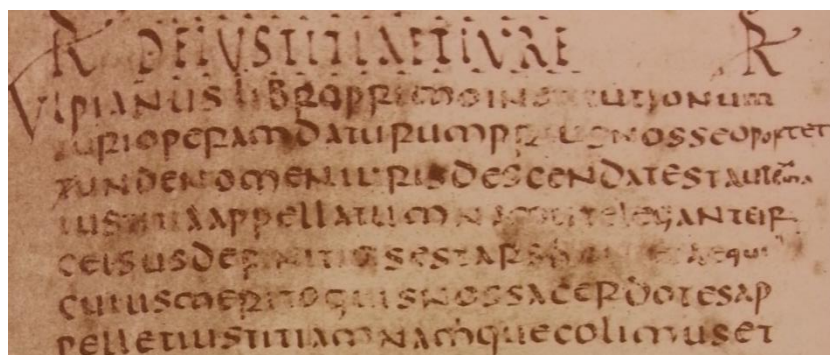 R DE IVSTITIA ET IVRE R
Vlpianus libro primo institutionum
iuri operam daturum prius nosse oportet
unde nomen iuris descendat est autem a
iustitia appellatum nam ut eleganter
celsus definit ius est ars boni et aequi
cuius merito quis nos sacerdotes ap
pellet iustitiam namque colimus et